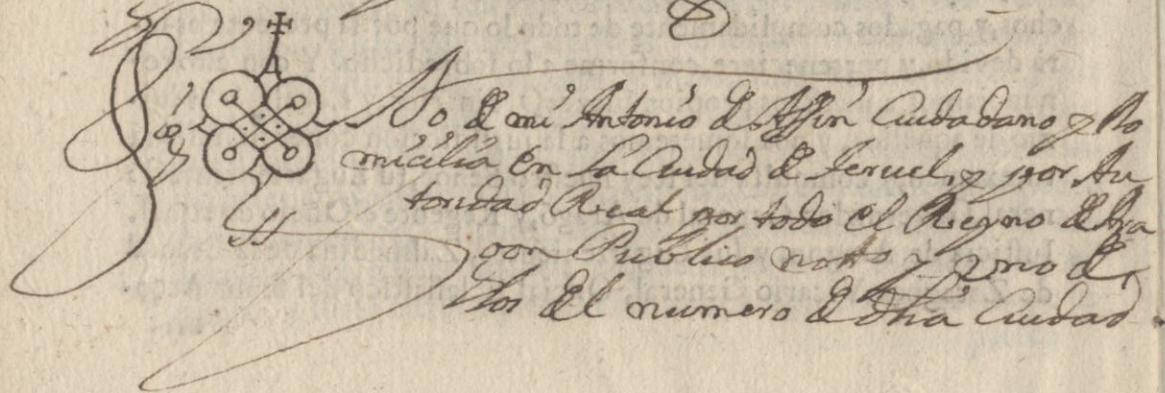 Sig no de mi Antonio de Assin Ciudadano y Do
micilia en la Ciudad de Teruel, y por Au
toridad Real por todo el Reyno de Ara
gon Publico notto y uno de
los del numero de dha Ciudad